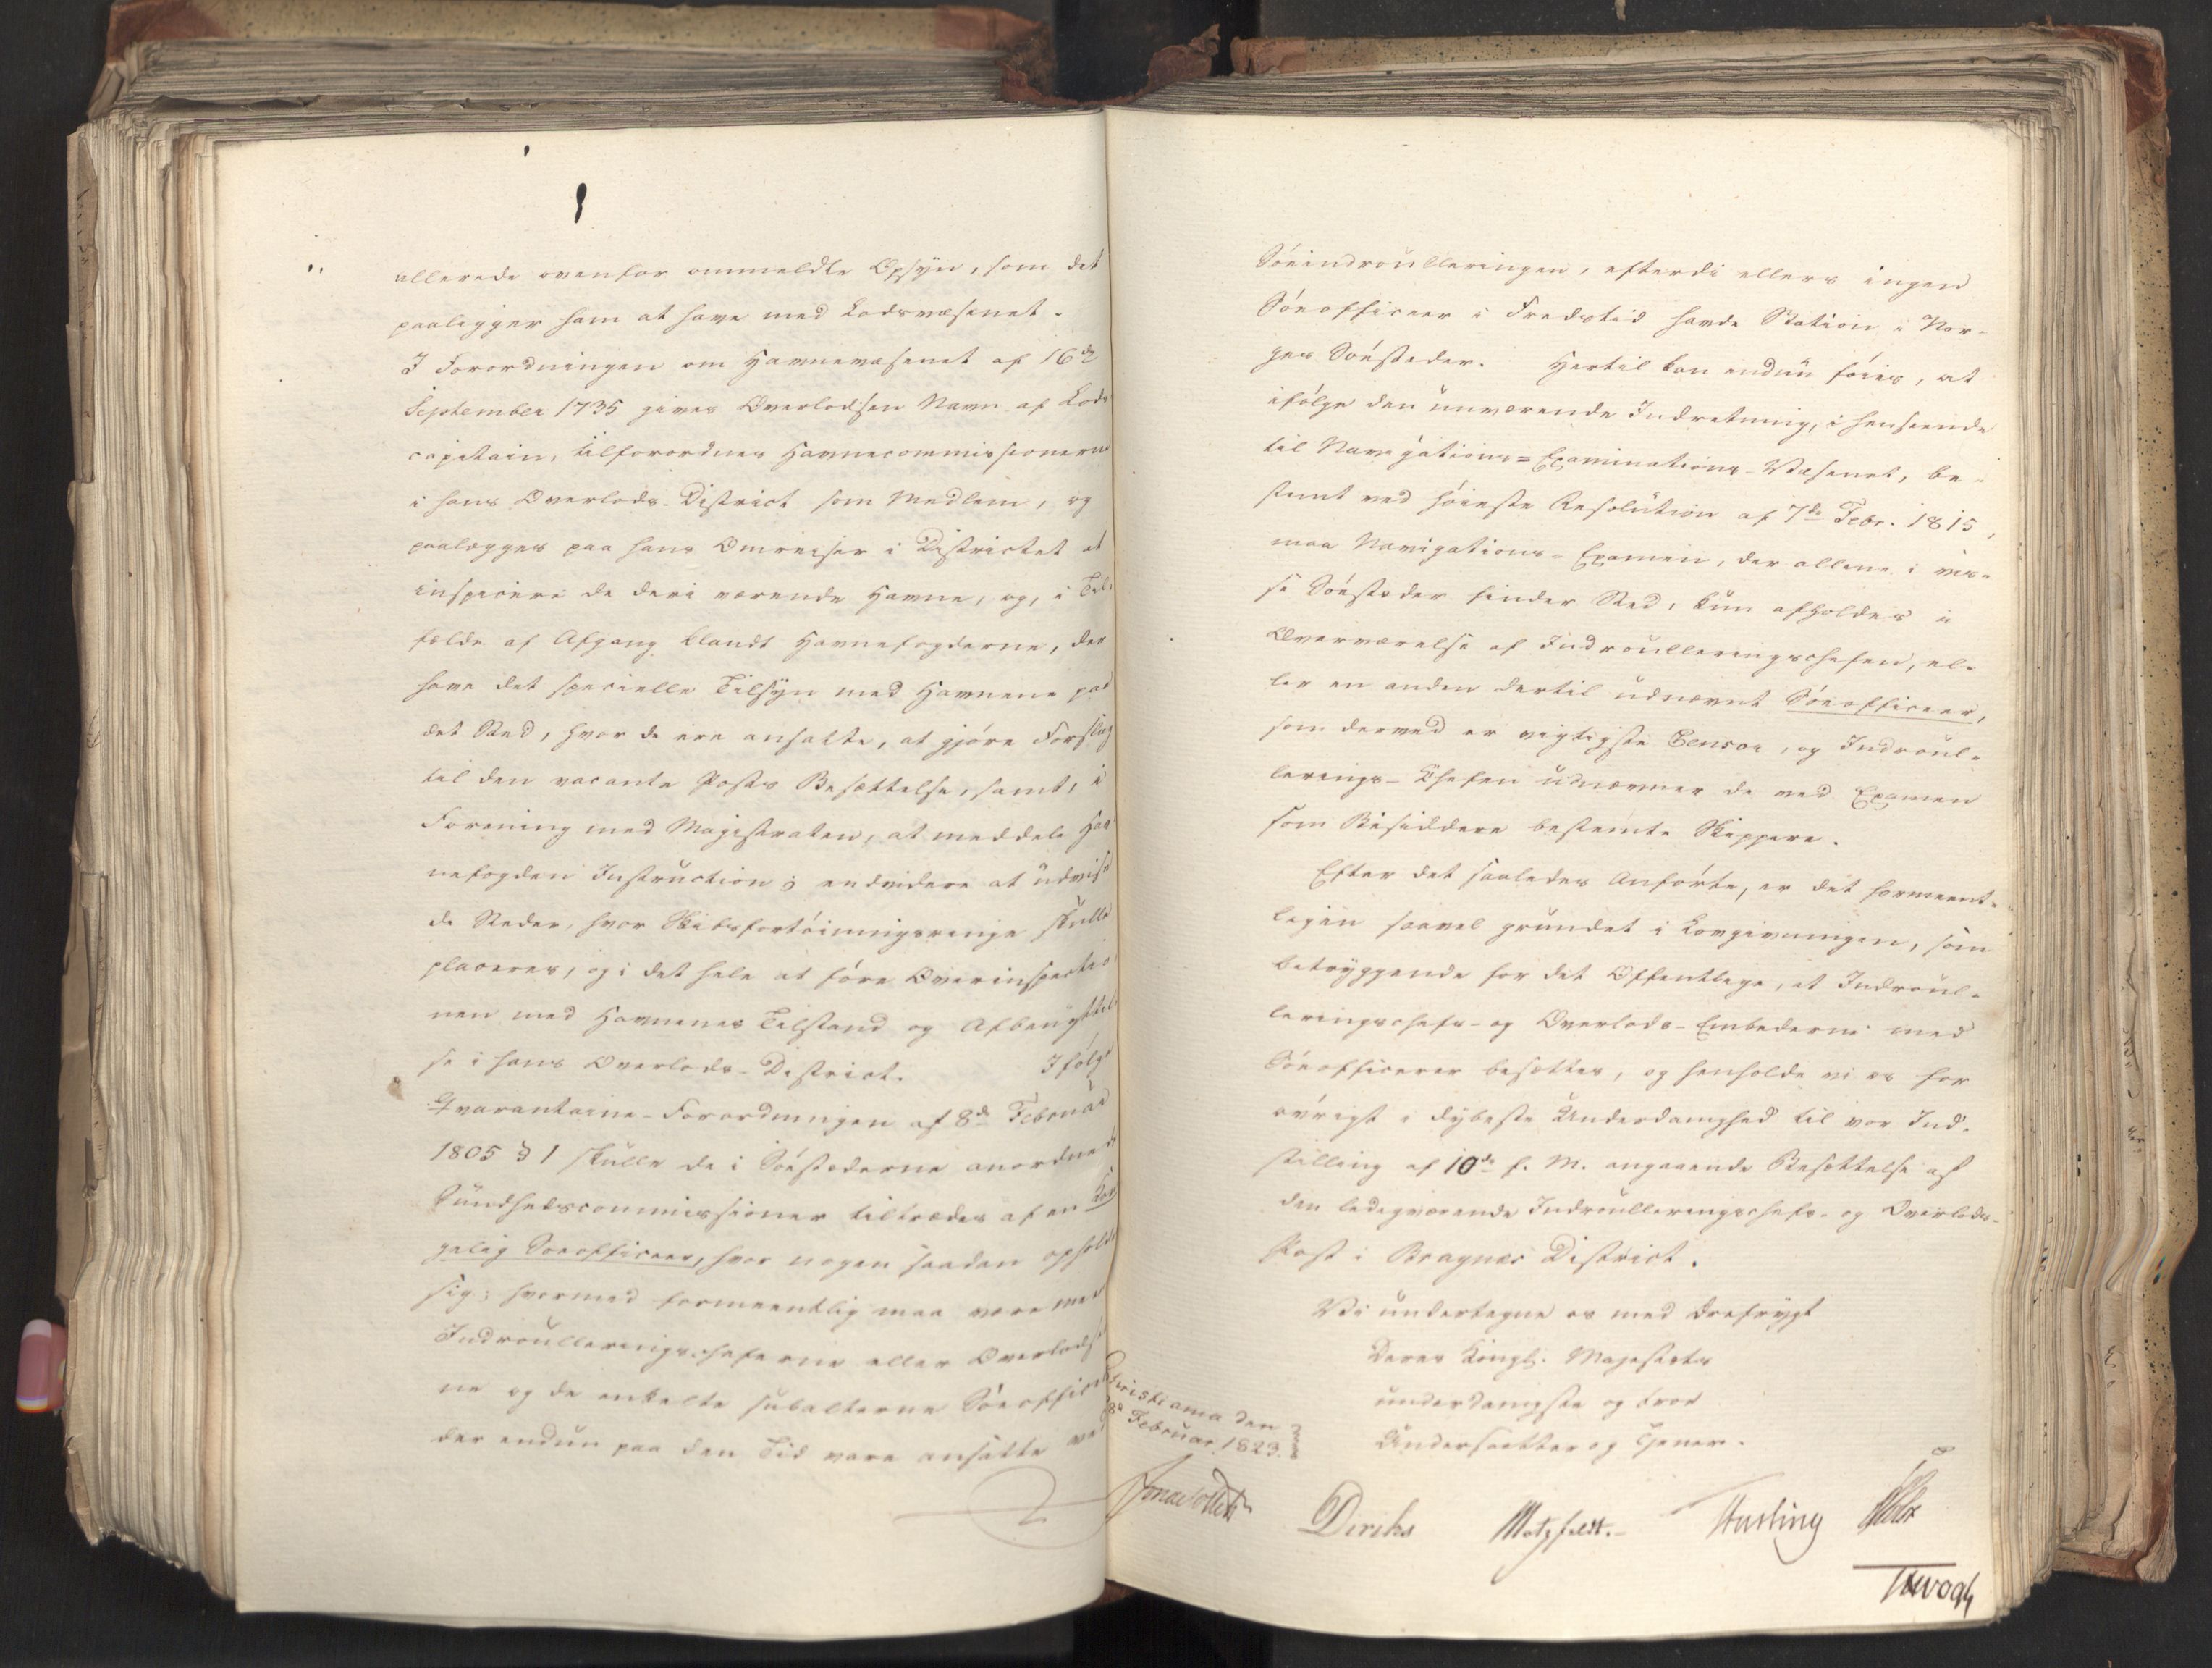 allerede ovenfor ommeldte Opsyn, som det
paaligger ham at have med Lodsvæsenet.
I Forordningen om Havnevæsenet af 16de
September 1735 gives Overlodsen Navn af Lods
capitain, tilforordnes Havnecommissionerne
i hans Overlods-District som Medlem, og
paalægges paa hans Omreiser i Districtet at
inspicere de deri værende Havne, og, i Til-
fælde af Afgang blandt Havnefogderne, der
have det specielle Tilsyn med Havnene paa
det Sted, hvor de ere ansatte, at gjøre Forslag
til den vacante Posts Besættelse, samt, i
Forening med Magistraten, at meddele Hav
nefogden Instruction; endvidere at udvise
de Steder, hvor Skibsfortøiningsringe skulle
placeres, og i det hele at føre Overinspectio
nen med Havnenes Tilstand og Afbenyttel
se i hans Overlods-District. Ifølge
Qvarantaine-Forordningen af 8de Februar
1805 § 1 skulle de i Søestæderne anordnede
Sundhedscommissioner tiltrædes af en Kon
gelig Søeofficeer, hvor nogen saadan opholdt
sig; hvormed formeentlig maa være meent
Indroulleringscheferne eller Overlodse
ne og de enkelte subalterne Søeofficerer
der endnu paa den Tid vare ansatte ved
Søeindroulleringen, efterdi ellers ingen
Søeofficeer i Fredstid havde Station i Nor-
ges Søestæder. Hertil kan endnu føies, at
ifølge den nuværende Indretning, i henseende
til Navigations-Examinations-Væsenet, be-
stemt ved høieste Resolution af 7de Febr. 1815,
maa Navigations-Examen, der allene i vis-
se Søestæder finder Sted, kun afholdes i
Overværelse af Indroulleringschefen, el-
ler en anden dertil udnævnt Søeofficeer,
som derved er vigtigste Censor, og Indroul-
lerings-Chefen udnævner de ved Examen
som Bisiddere bestemte Skippere.
Efter det saaledes Anførte, er det formeent-
ligen saavel grundet i Lovgivningen, som
betryggende for det Offentlige, at Indroul-
leringschefs- og Overlods-Embederne med
Søeofficerer besættes, og henholde vi os for
øvrigt i dybeste Underdanighed til vor Ind-
stilling af 10de f. M. angaaende Besættelse af
den ledigværende Indroulleringschefs- og Overlods-
Post i Bragnæs District.
Vi undertegne os med Ærefrygt
Deres Kongl. Majestæts
underdanigste og troe
Undersaatter og Tjenere.
Christiania den
8de Februar 1823.
Jonas Collett
Diriks Motzfeldt. Hasting
TKrogh